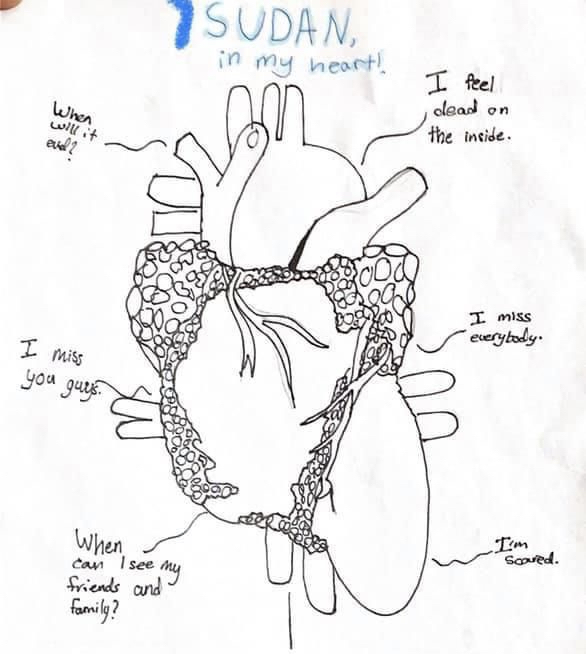 SUDAN,
in my heart!
When
will it
end?
I feel
dead on
the inside.
I miss
everybody.
I miss
you guys.
When
can I see my
friends and
family?
I'm
scared.